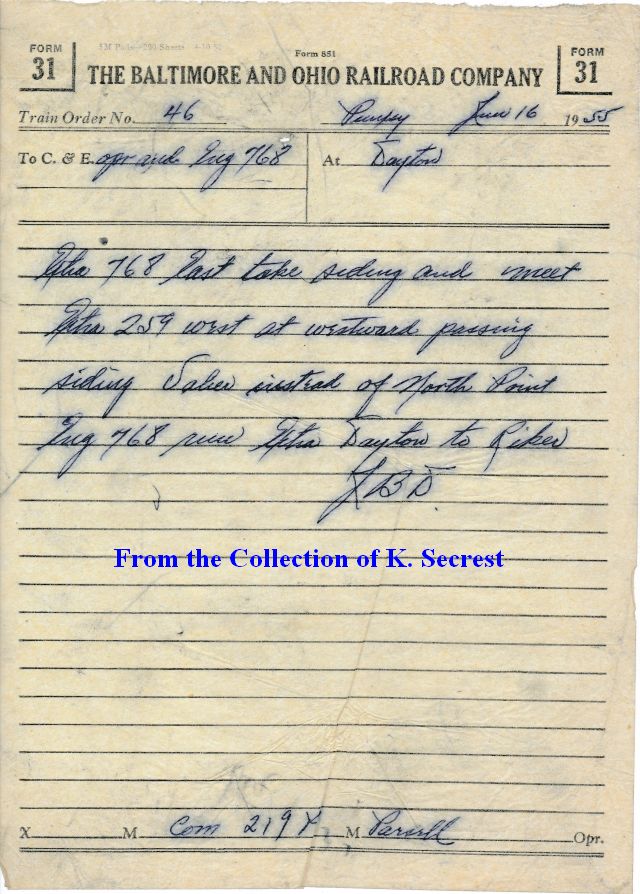 FORM 31
5M Pads—200 Sheets 4-10-52
Form 851
FORM 31
THE BALTIMORE AND OHIO RAILROAD COMPANY
Train Order No. 46 Punxsy 16 1955
To C. & E. opr and Eng 768 At Dayton
Extra 768 East take siding and meet
Extra 259 west at westward passing
siding instead of North Point
Eng 768 run Extra Dayton to Riker
From the Collection of K. Secrest
X M Com 219 M Opr.